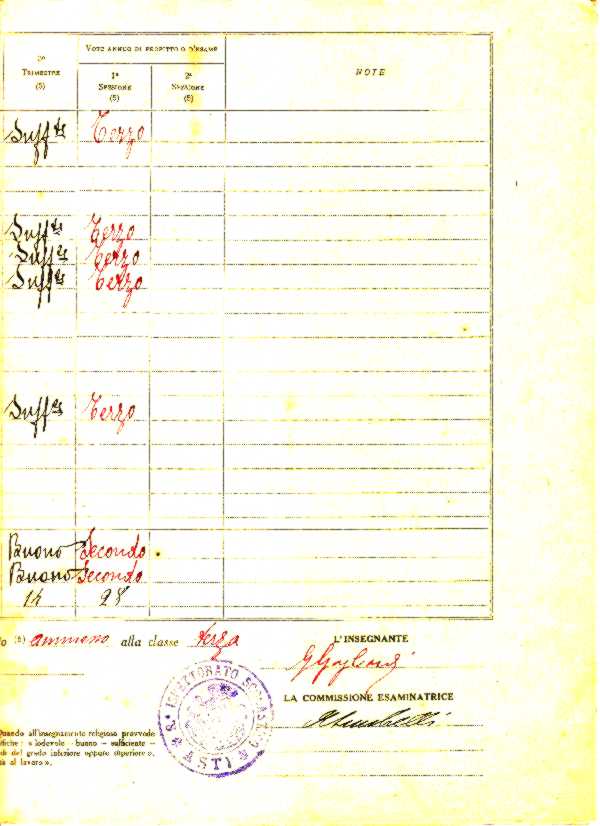 3º VOTO ANNUO DI PROFITTO O D'ESAME
TRIMESTRE 1ª 2ª NOTE
(5) SESSIONE SESSIONE
(5) (5)
Suff.te Terzo
Suff.te Terzo
Suff.te Terzo
Suff.te Terzo
Suff.te Terzo
Buono Secondo
Buono Secondo
14 28
ammesso alla classe terza
L'INSEGNANTE
LA COMMISSIONE ESAMINATRICE
ISPETTORATO SCOLASTICO
ASTI
Quando all'insegnamento religioso provvede
tiche: «lodevole - buono - sufficiente -
di del grado inferiore oppure superiore»,
tà al lavoro».